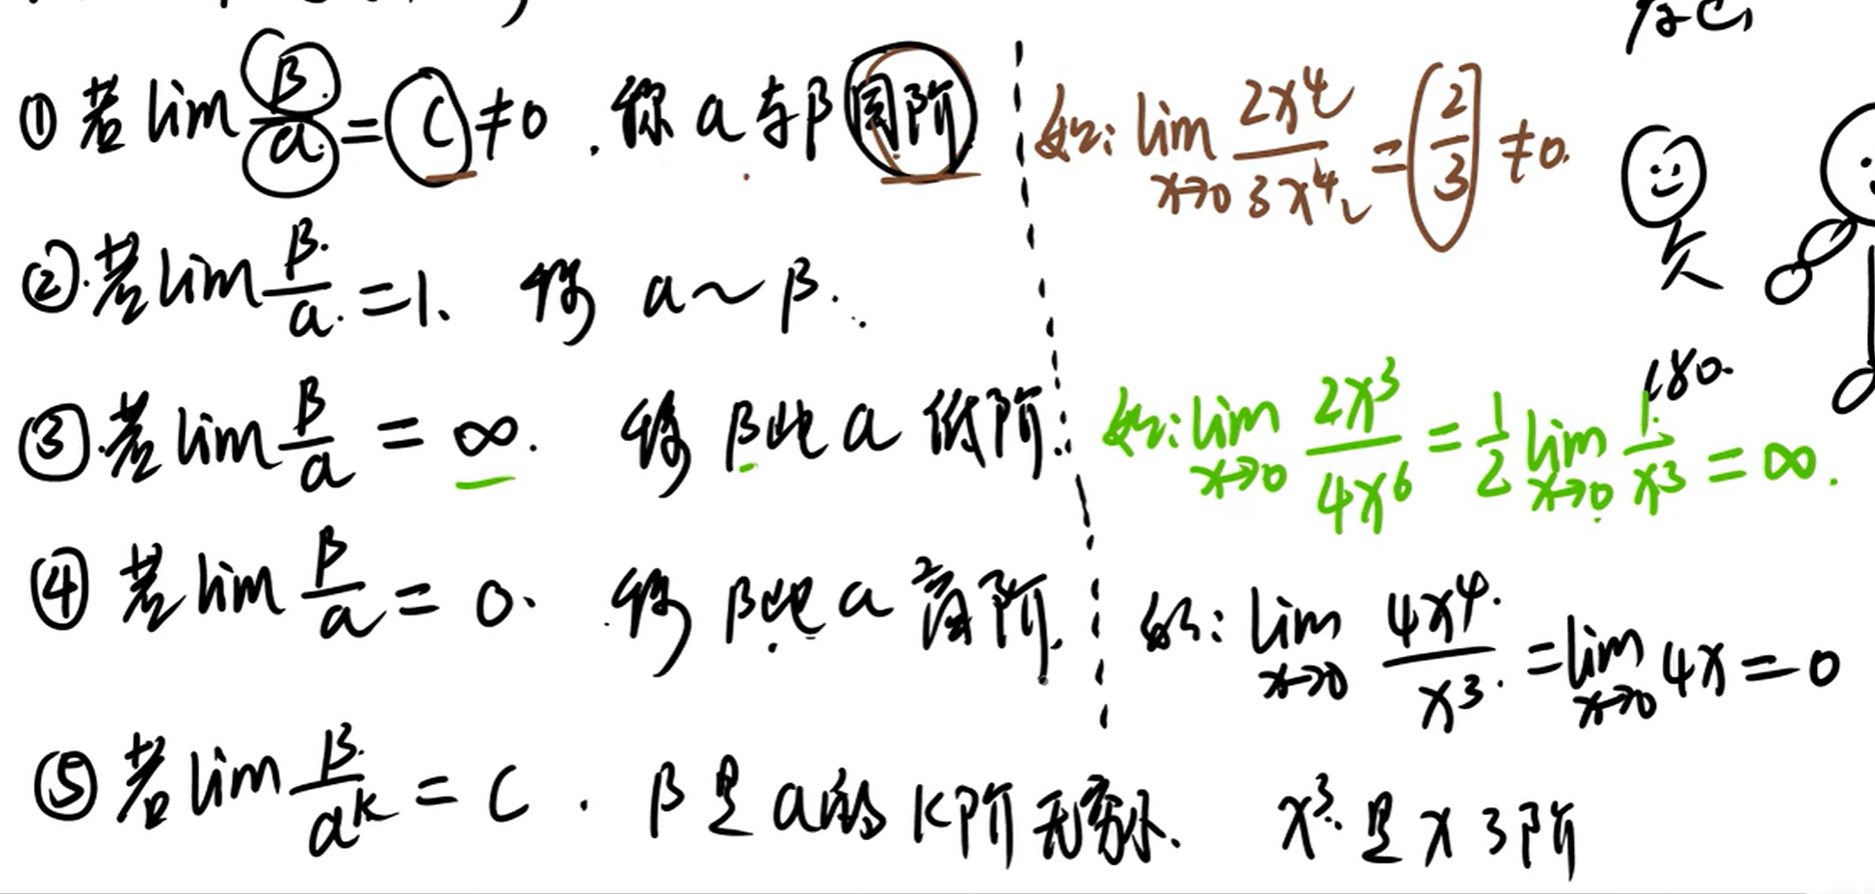 ① 若 lim β/α = C ≠ 0 . 称 α 与 β 同阶 如: lim x→0 2x⁴/3x⁴ = 2/3 ≠ 0.
② 若 lim β/α = 1. 称 α ~ β.
180.
③ 若 lim β/α = ∞. 称 β 比 α 低阶. 如: lim x→0 2x³/4x⁶ = 1/2 lim x→0 1/x³ = ∞.
④ 若 lim β/α = 0. 称 β 比 α 高阶. 如: lim x→0 4x⁴/x³ = lim x→0 4x = 0
⑤ 若 lim β/αᵏ = C . β 是 α 的 K 阶 无穷小. x³ 是 x 3 阶